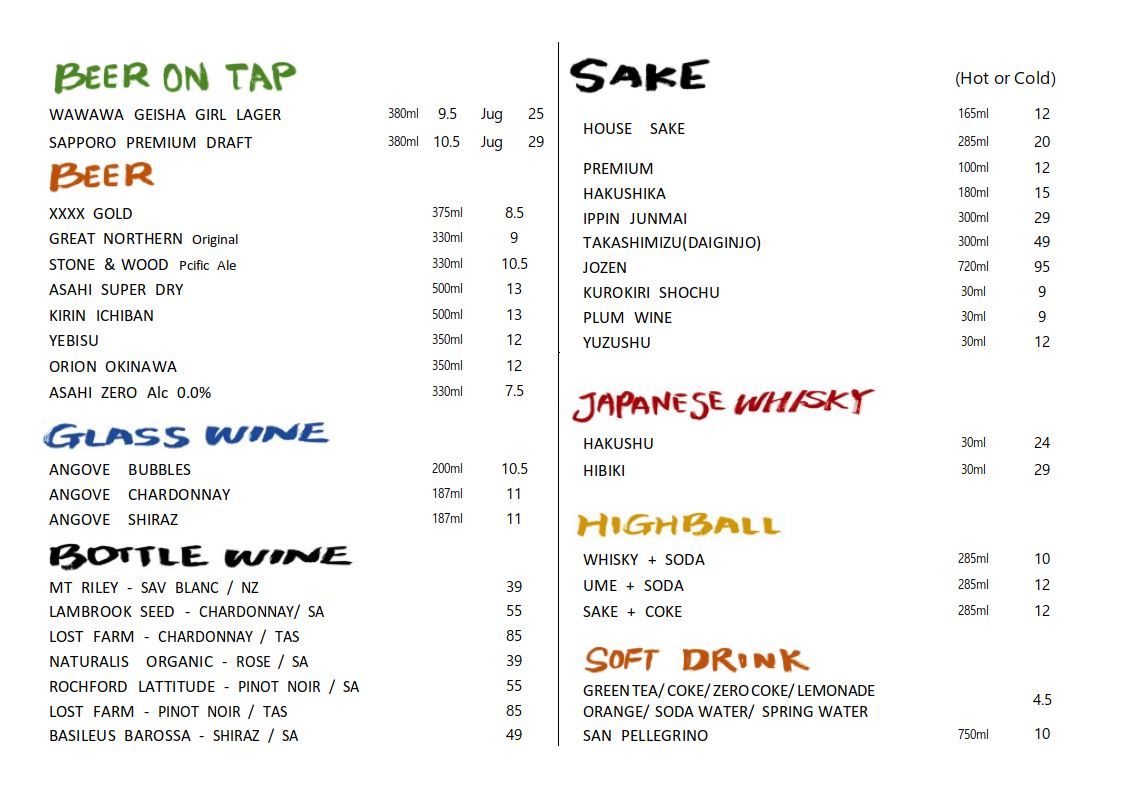 BEER ON TAP
WAWAWA GEISHA GIRL LAGER 380ml 9.5 Jug 25
SAPPORO PREMIUM DRAFT 380ml 10.5 Jug 29
BEER
XXXX GOLD 375ml 8.5
GREAT NORTHERN Original 330ml 9
STONE & WOOD Pcific Ale 330ml 10.5
ASAHI SUPER DRY 500ml 13
KIRIN ICHIBAN 500ml 13
YEBISU 350ml 12
ORION OKINAWA 350ml 12
ASAHI ZERO Alc 0.0% 330ml 7.5
GLASS WINE
ANGOVE BUBBLES 200ml 10.5
ANGOVE CHARDONNAY 187ml 11
ANGOVE SHIRAZ 187ml 11
BOTTLE WINE
MT RILEY - SAV BLANC / NZ 39
LAMBROOK SEED - CHARDONNAY/ SA 55
LOST FARM - CHARDONNAY / TAS 85
NATURALIS ORGANIC - ROSE / SA 39
ROCHFORD LATTITUDE - PINOT NOIR / SA 55
LOST FARM - PINOT NOIR / TAS 85
BASILEUS BAROSSA - SHIRAZ / SA 49
SAKE (Hot or Cold)
165ml 12
HOUSE SAKE
285ml 20
PREMIUM 100ml 12
HAKUSHIKA 180ml 15
IPPIN JUNMAI 300ml 29
TAKASHIMIZU(DAIGINJO) 300ml 49
JOZEN 720ml 95
KUROKIRI SHOCHU 30ml 9
PLUM WINE 30ml 9
YUZUSHU 30ml 12
JAPANESE WHISKY
HAKUSHU 30ml 24
HIBIKI 30ml 29
HIGHBALL
WHISKY + SODA 285ml 10
UME + SODA 285ml 12
SAKE + COKE 285ml 12
SOFT DRINK
GREEN TEA/ COKE/ ZERO COKE/ LEMONADE
4.5
ORANGE/ SODA WATER/ SPRING WATER
SAN PELLEGRINO 750ml 10